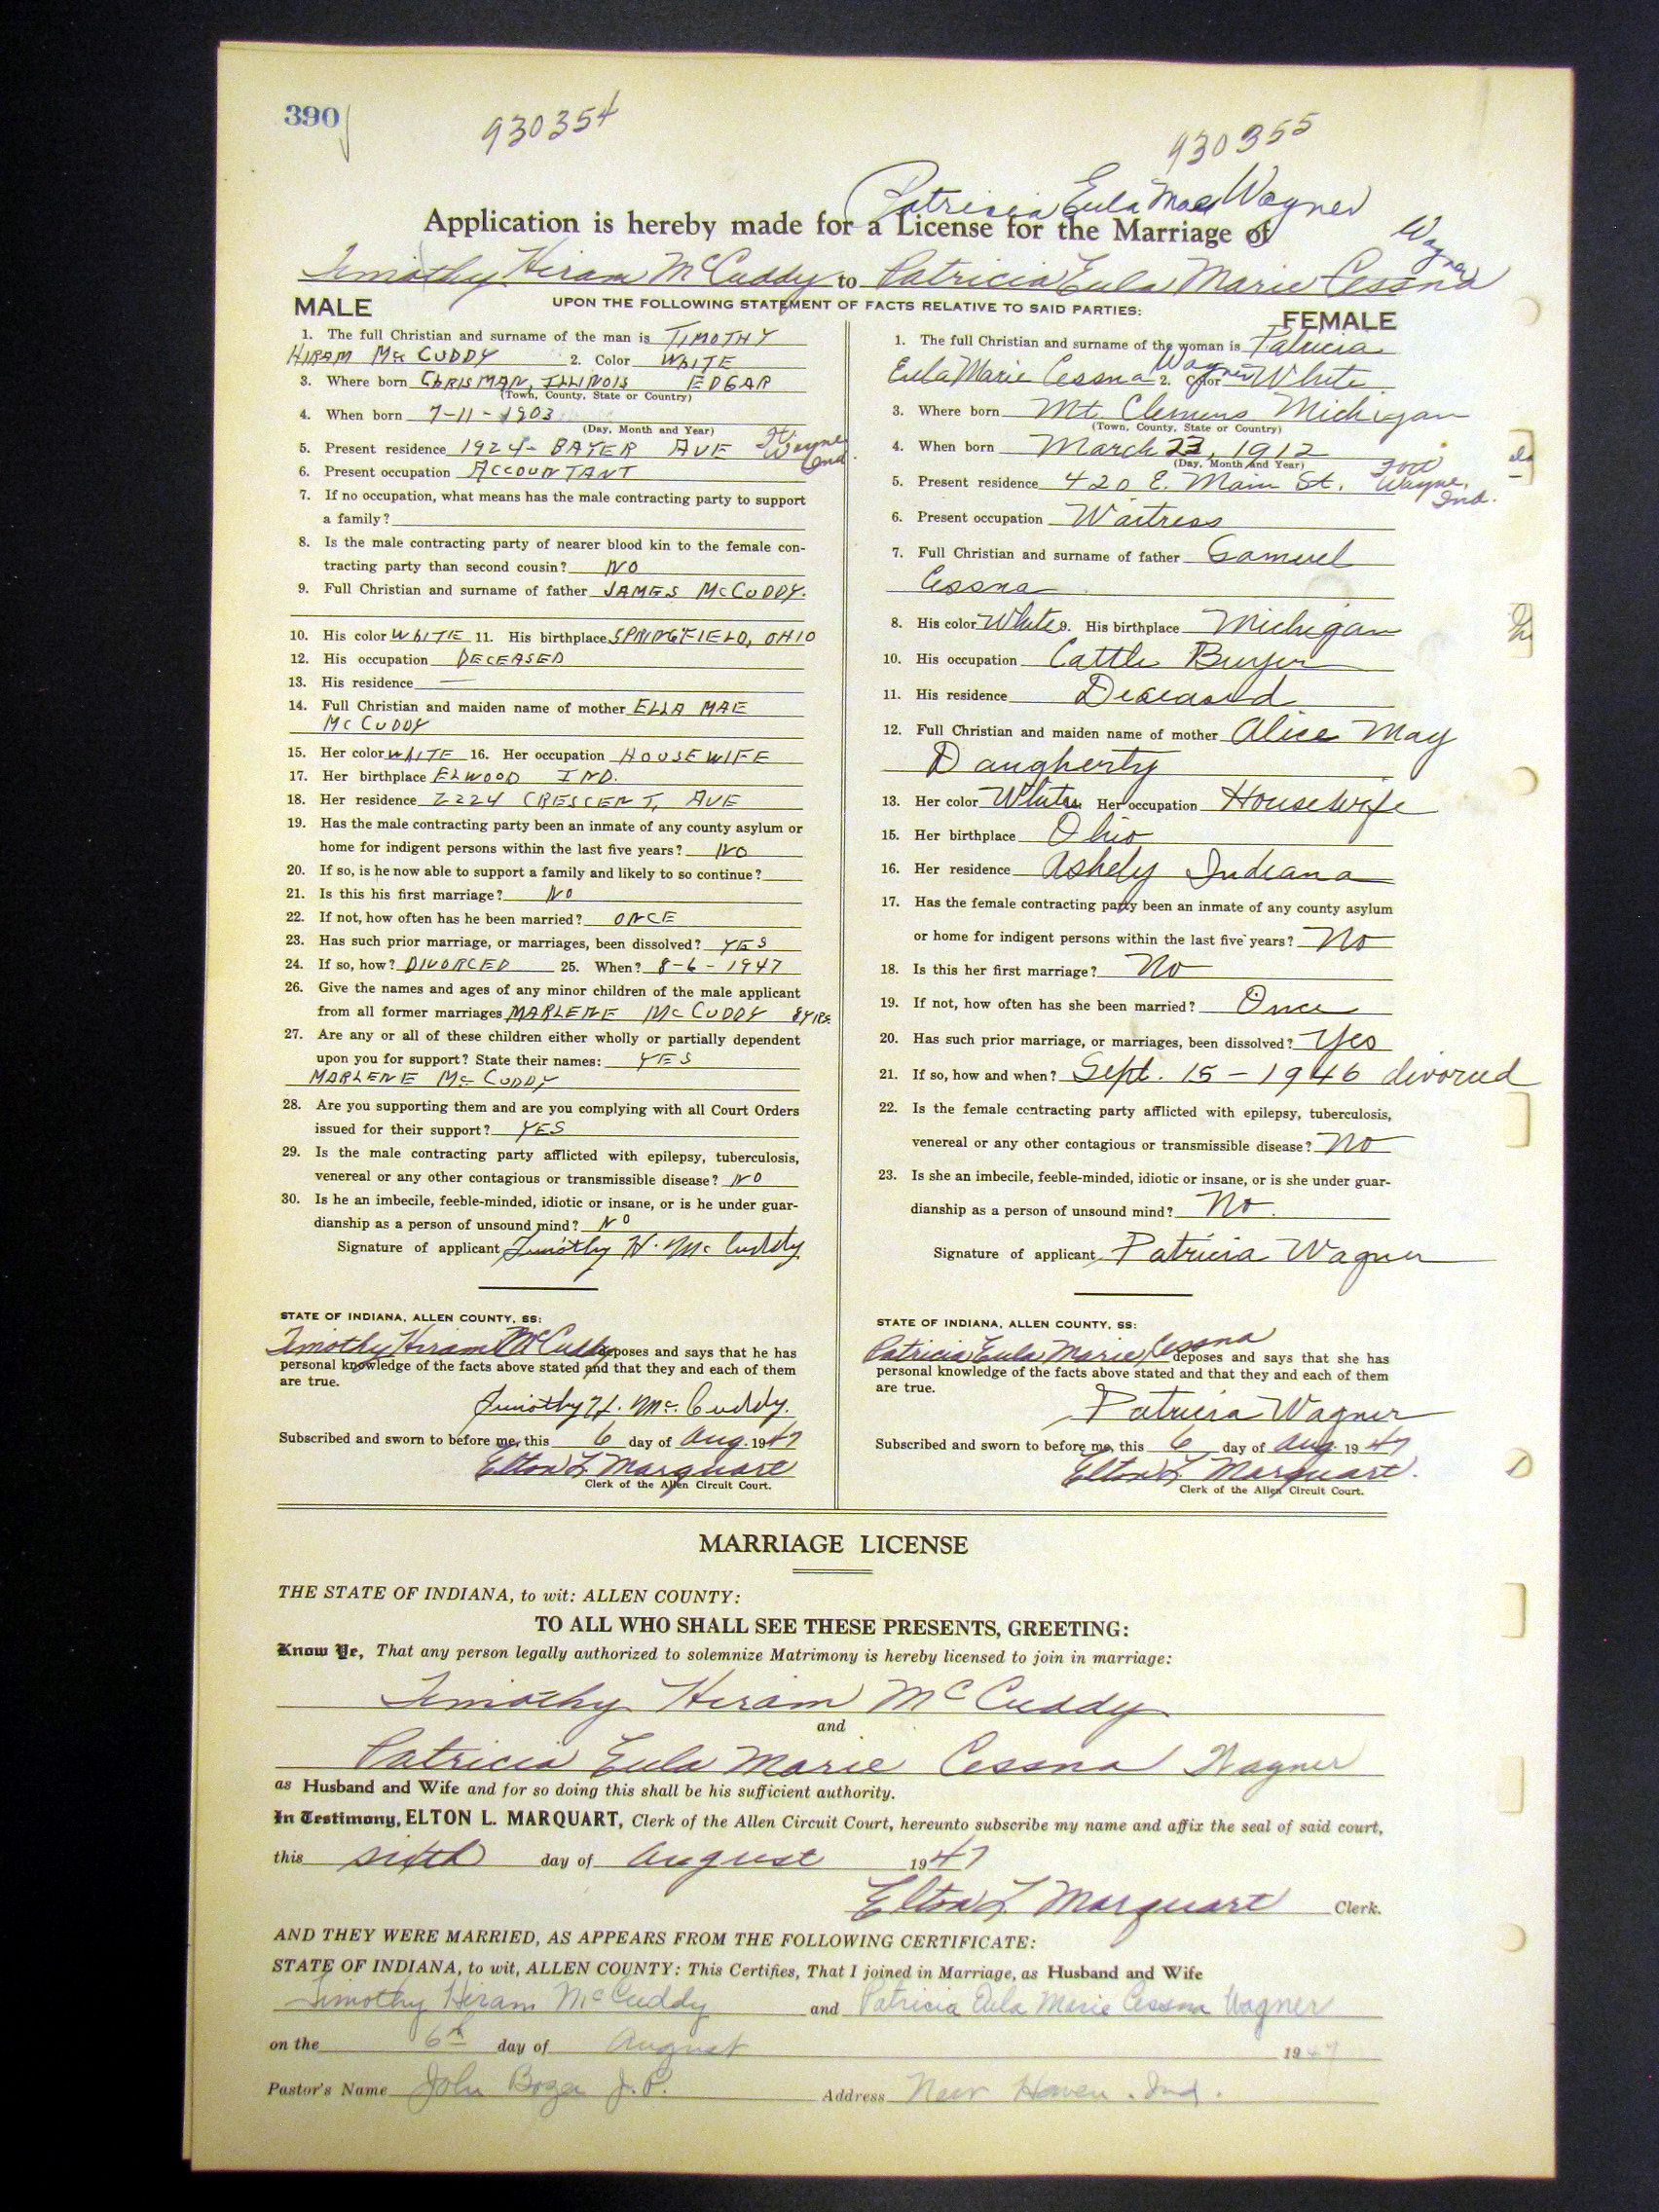 390
930354
930355
Patricia Eula Mae Wagner
Application is hereby made for a License for the Marriage of
Timothy Hiram McCuddy to Patricia Eula Marie Cessna Wagner
UPON THE FOLLOWING STATEMENT OF FACTS RELATIVE TO SAID PARTIES:
MALE
1. The full Christian and surname of the man is TIMOTHY
HIRAM Mc CUDDY 2. Color WHITE
3. Where born CHRISMAN, ILLINOIS EDGAR
(Town, County, State or Country)
4. When born 7-11-1903
(Day, Month and Year)
5. Present residence 1924- BAYER AVE Ft Wayne Ind.
6. Present occupation ACCOUNTANT
7. If no occupation, what means has the male contracting party to support
a family?
8. Is the male contracting party of nearer blood kin to the female con-
tracting party than second cousin? NO
9. Full Christian and surname of father JAMES McCUDDY.
10. His color WHITE 11. His birthplace SPRINGFIELD, OHIO
12. His occupation DECEASED
13. His residence —
14. Full Christian and maiden name of mother ELLA MAE
Mc CUDDY
15. Her color WHITE 16. Her occupation HOUSEWIFE
17. Her birthplace ELWOOD IND.
18. Her residence 2224 CRESCENT, AVE
19. Has the male contracting party been an inmate of any county asylum or
home for indigent persons within the last five years? NO
20. If so, is he now able to support a family and likely to so continue?
21. Is this his first marriage? NO
22. If not, how often has he been married? ONCE
23. Has such prior marriage, or marriages, been dissolved? YES
24. If so, how? DIVORCED 25. When? 8-6-1947
26. Give the names and ages of any minor children of the male applicant
from all former marriages MARLENE McCUDDY 8YRS.
27. Are any or all of these children either wholly or partially dependent
upon you for support? State their names: YES
MARLENE Mc CUDDY
28. Are you supporting them and are you complying with all Court Orders
issued for their support? YES
29. Is the male contracting party afflicted with epilepsy, tuberculosis,
venereal or any other contagious or transmissible disease? NO
30. Is he an imbecile, feeble-minded, idiotic or insane, or is he under guar-
dianship as a person of unsound mind? NO
Signature of applicant Timothy H. Mc Cuddy
STATE OF INDIANA, ALLEN COUNTY, SS:
Timothy Hiram McCuddy deposes and says that he has
personal knowledge of the facts above stated and that they and each of them
are true.
Timothy H. Mc. Cuddy.
Subscribed and sworn to before me, this 6 day of Aug. 1947
Elton L Marquart
Clerk of the Allen Circuit Court.
FEMALE
1. The full Christian and surname of the woman is Patricia
Eula Marie Cessna Wagner 2. Color White
3. Where born Mt Clemens Michigan
(Town, County, State or Country)
4. When born March 23, 1912
(Day, Month and Year)
5. Present residence 420 E. Main St. Fort Wayne, Ind.
6. Present occupation Waitress
7. Full Christian and surname of father Samuel
Cessna
8. His color White 9. His birthplace Michigan
10. His occupation Cattle Buyer
11. His residence Deceased
12. Full Christian and maiden name of mother Alice May
Daugherty
13. Her color White Her occupation Housewife
15. Her birthplace Ohio
16. Her residence Ashely Indiana
17. Has the female contracting party been an inmate of any county asylum
or home for indigent persons within the last five years? No
18. Is this her first marriage? No
19. If not, how often has she been married? Once
20. Has such prior marriage, or marriages, been dissolved? Yes
21. If so, how and when? Sept. 15-1946 divorced
22. Is the female contracting party afflicted with epilepsy, tuberculosis,
venereal or any other contagious or transmissible disease? No
23. Is she an imbecile, feeble-minded, idiotic or insane, or is she under guar-
dianship as a person of unsound mind? No.
Signature of applicant Patricia Wagner
STATE OF INDIANA, ALLEN COUNTY, SS:
Patricia Eula Marie Cessna deposes and says that she has
personal knowledge of the facts above stated and that they and each of them
are true.
Patricia Wagner
Subscribed and sworn to before me, this 6 day of Aug. 1947
Elton L Marquart.
Clerk of the Allen Circuit Court.
MARRIAGE LICENSE
THE STATE OF INDIANA, to wit: ALLEN COUNTY:
TO ALL WHO SHALL SEE THESE PRESENTS, GREETING:
Know Ye, That any person legally authorized to solemnize Matrimony is hereby licensed to join in marriage:
Timothy Hiram McCuddy
and
Patricia Eula Marie Cessna Wagner
as Husband and Wife and for so doing this shall be his sufficient authority.
In Testimony, ELTON L. MARQUART, Clerk of the Allen Circuit Court, hereunto subscribe my name and affix the seal of said court,
this sixth day of August 1947
Elton L Marquart Clerk.
AND THEY WERE MARRIED, AS APPEARS FROM THE FOLLOWING CERTIFICATE:
STATE OF INDIANA, to wit, ALLEN COUNTY: This Certifies, That I joined in Marriage, as Husband and Wife
Timothy Hiram McCuddy and Patricia Eula Marie Cessna Wagner
on the 6th day of August 1947
Pastor's Name John Boger J.P. Address New Haven. Ind.